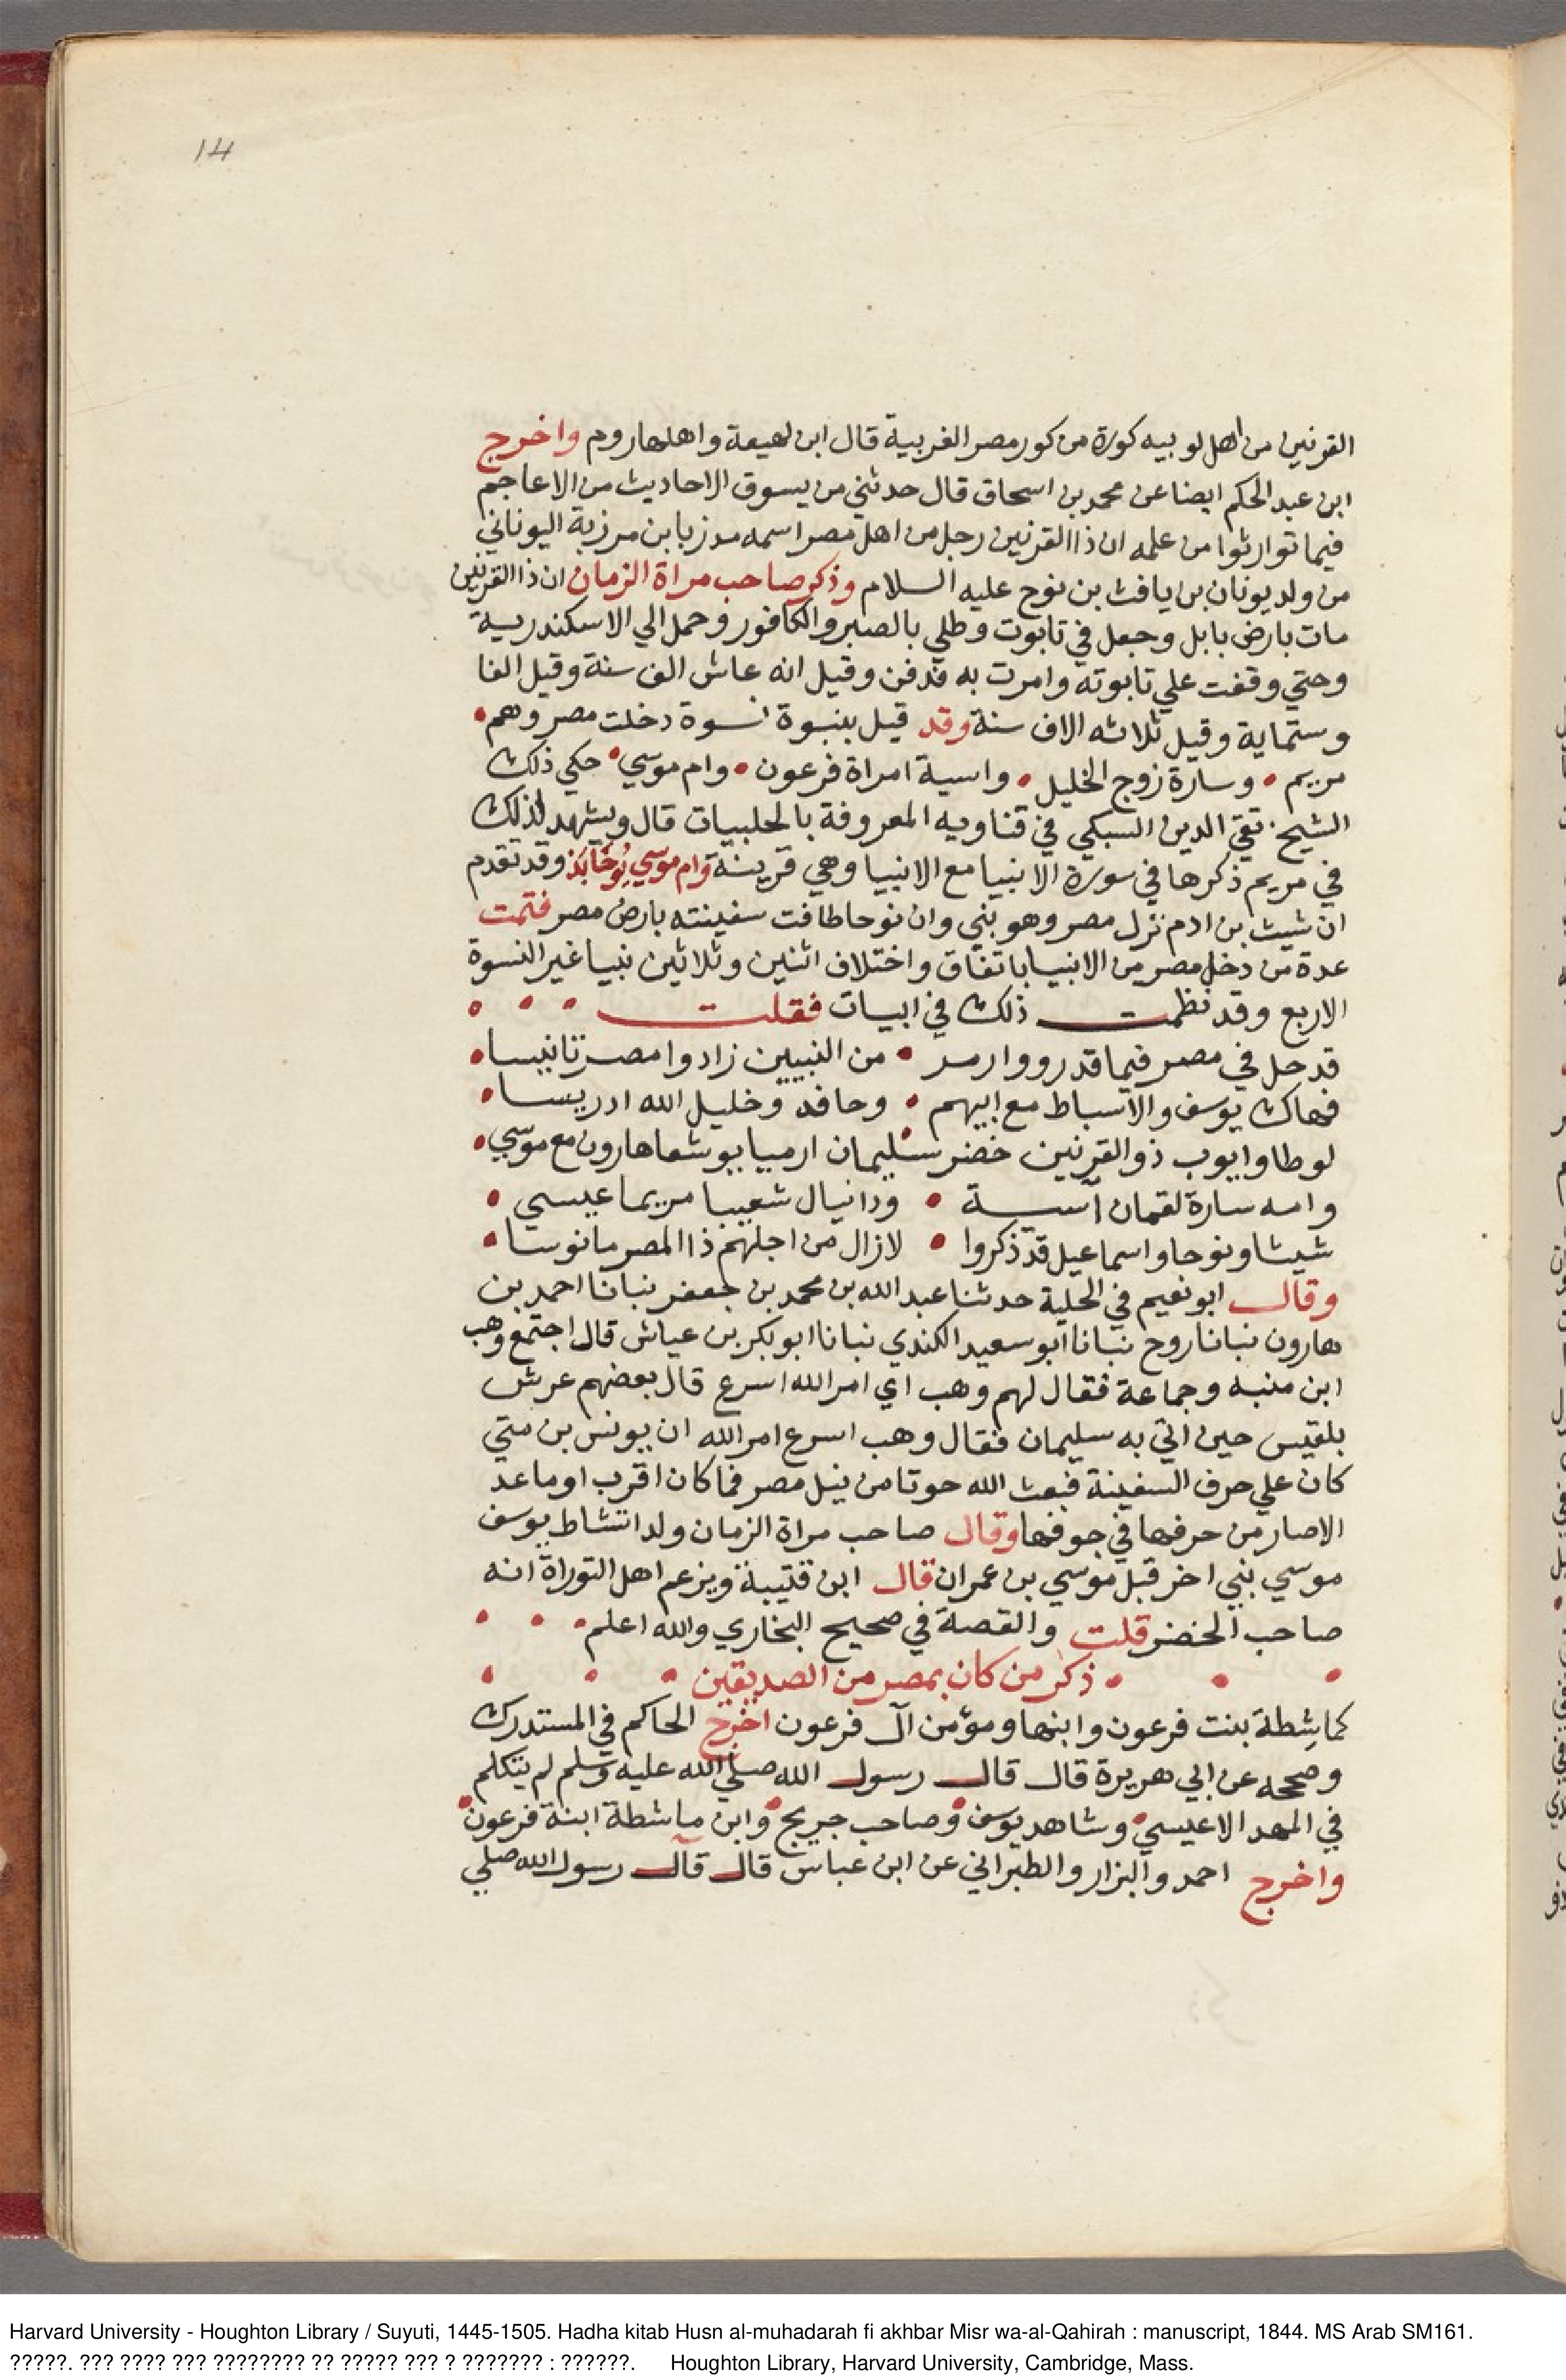 14
القرنين من اهل لوبيه كورة من كور مصر الغربية قال ابن لهيعة واهلها روم واخرج
ابن عبد الحكم ايضا عن محمد بن اسحاق قال حدثني من يسوق الاحاديث من الاعاجم
فيما توارثوا من علمه ان ذا القرنين رجل من اهل مصر اسمه مرزبا بن مرزبة اليوناني
من ولد يونان بن يافث بن نوح عليه السلام وذكر صاحب مراة الزمان ان ذا القرنين
مات بارض بابل وجعل في تابوت وطلي بالصبر والكافور وحمل الي الاسكندرية
وحتي وقفت علي تابوته وامرت به فدفن وقيل انه عاش الف سنة وقيل الفا
وستماية وقيل ثلاثه الاف سنة وقد قيل بنبوة نسوة دخلت مصر وهم
مريم • وسارة زوج الخليل • واسية امراة فرعون • وام موسي • حكي ذلك
الشيخ تقي الدين السبكي في فتاويه المعروفة بالحلبيات قال ويشهد لذلك
في مريم ذكرها في سورة الانبيا مع الانبيا وهي قرينة وام موسي يُوخَابَذ وقد تقدم
ان شيث بن ادم نزل مصر وهو بني وان نوحا طافت سفينته بارض مصر فتمت
عدة من دخل مصر من الانبيا باتفاق واختلاف اثنين وثلاثين نبيا غير النسوة
الاربع وقد نظمت ذلك في ابيات فقلت
قد حل في مصر فيما قد رووا زمر • من النبيين زادوا مصر تانيسا •
فهاك يوسف والاسباط مع ابيهم • وحافد وخليل الله ادريسا •
لوطا وايوب ذو القرنين خضر سليمان ارميا يوشعا هارون مع موسي •
وامه سارة لقمان آسية • ودانيال شعيبا مريما عيسي •
شيثا ونوحا واسماعيل قد ذكروا • لا زال من اجلهم ذا المصر مانوسا •
وقال ابو نعيم في الحلية حدثنا عبد الله بن محمد بن جعفر نبانا احمد بن
هارون نبانا روح نبانا ابو سعيد الكندي نبانا ابو بكر بن عياش قال اجتمع وهب
ابن منبه وجماعة فقال لهم وهب اي امر الله اسرع قال بعضهم عرش
بلقيس حين اتي به سليمان فقال وهب اسرع امر الله ان يونس بن متي
كان علي حرف السفينة فبعث الله حوتا من نيل مصر فما كان اقرب او ما عد
الاصار من حرفها في جوفها وقال صاحب مراة الزمان ولد انتشاط يوسف
موسي بني اخر قبل موسي بن عمران قال ابن قتيبة ويزعم اهل التوراة انه
صاحب الخضر قلت والقصة في صحيح البخاري والله اعلم •
• ذكر من كان بمصر من الصديقين •
كماشِطة بنت فرعون وابنها ومؤمن آل فرعون اخرج الحاكم في المستدرك
وصححه عن ابي هريرة قال قال رسول الله صلي الله عليه وسلم لم يتكلم
في المهد الا عيسي • وشاهد يوسف • وصاحب جريج • وابن ماشطة ابنة فرعون •
واخرج احمد والبزار والطبراني عن ابن عباس قال قال رسول الله صلي
Harvard University - Houghton Library / Suyuti, 1445-1505. Hadha kitab Husn al-muhadarah fi akhbar Misr wa-al-Qahirah : manuscript, 1844. MS Arab SM161.
?????. ??? ???? ??? ???????? ?? ????? ??? ? ??????? : ??????. Houghton Library, Harvard University, Cambridge, Mass.